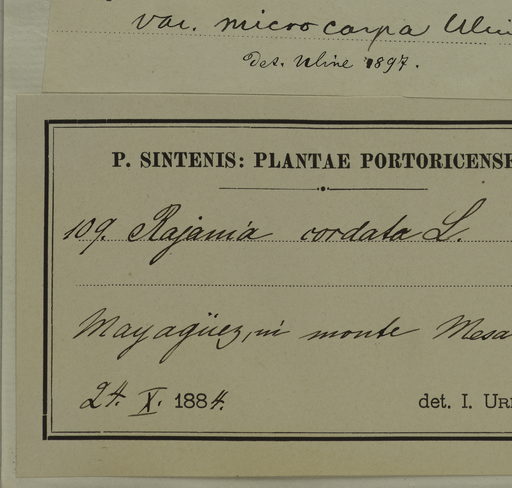 var. microcarpa Uline
det. Uline 1897.
P. SINTENIS: PLANTAE PORTORICENSE
109. Rajania cordata L.
Mayagüez, in monte Mesa
24. X. 1884. det. I. UR